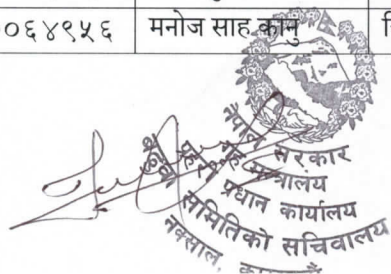 ०६४९५६ मनोज साह कानु
नेपाल सरकार
मन्त्रालय
प्रधान कार्यालय
समितिको सचिवालय
नक्साल,